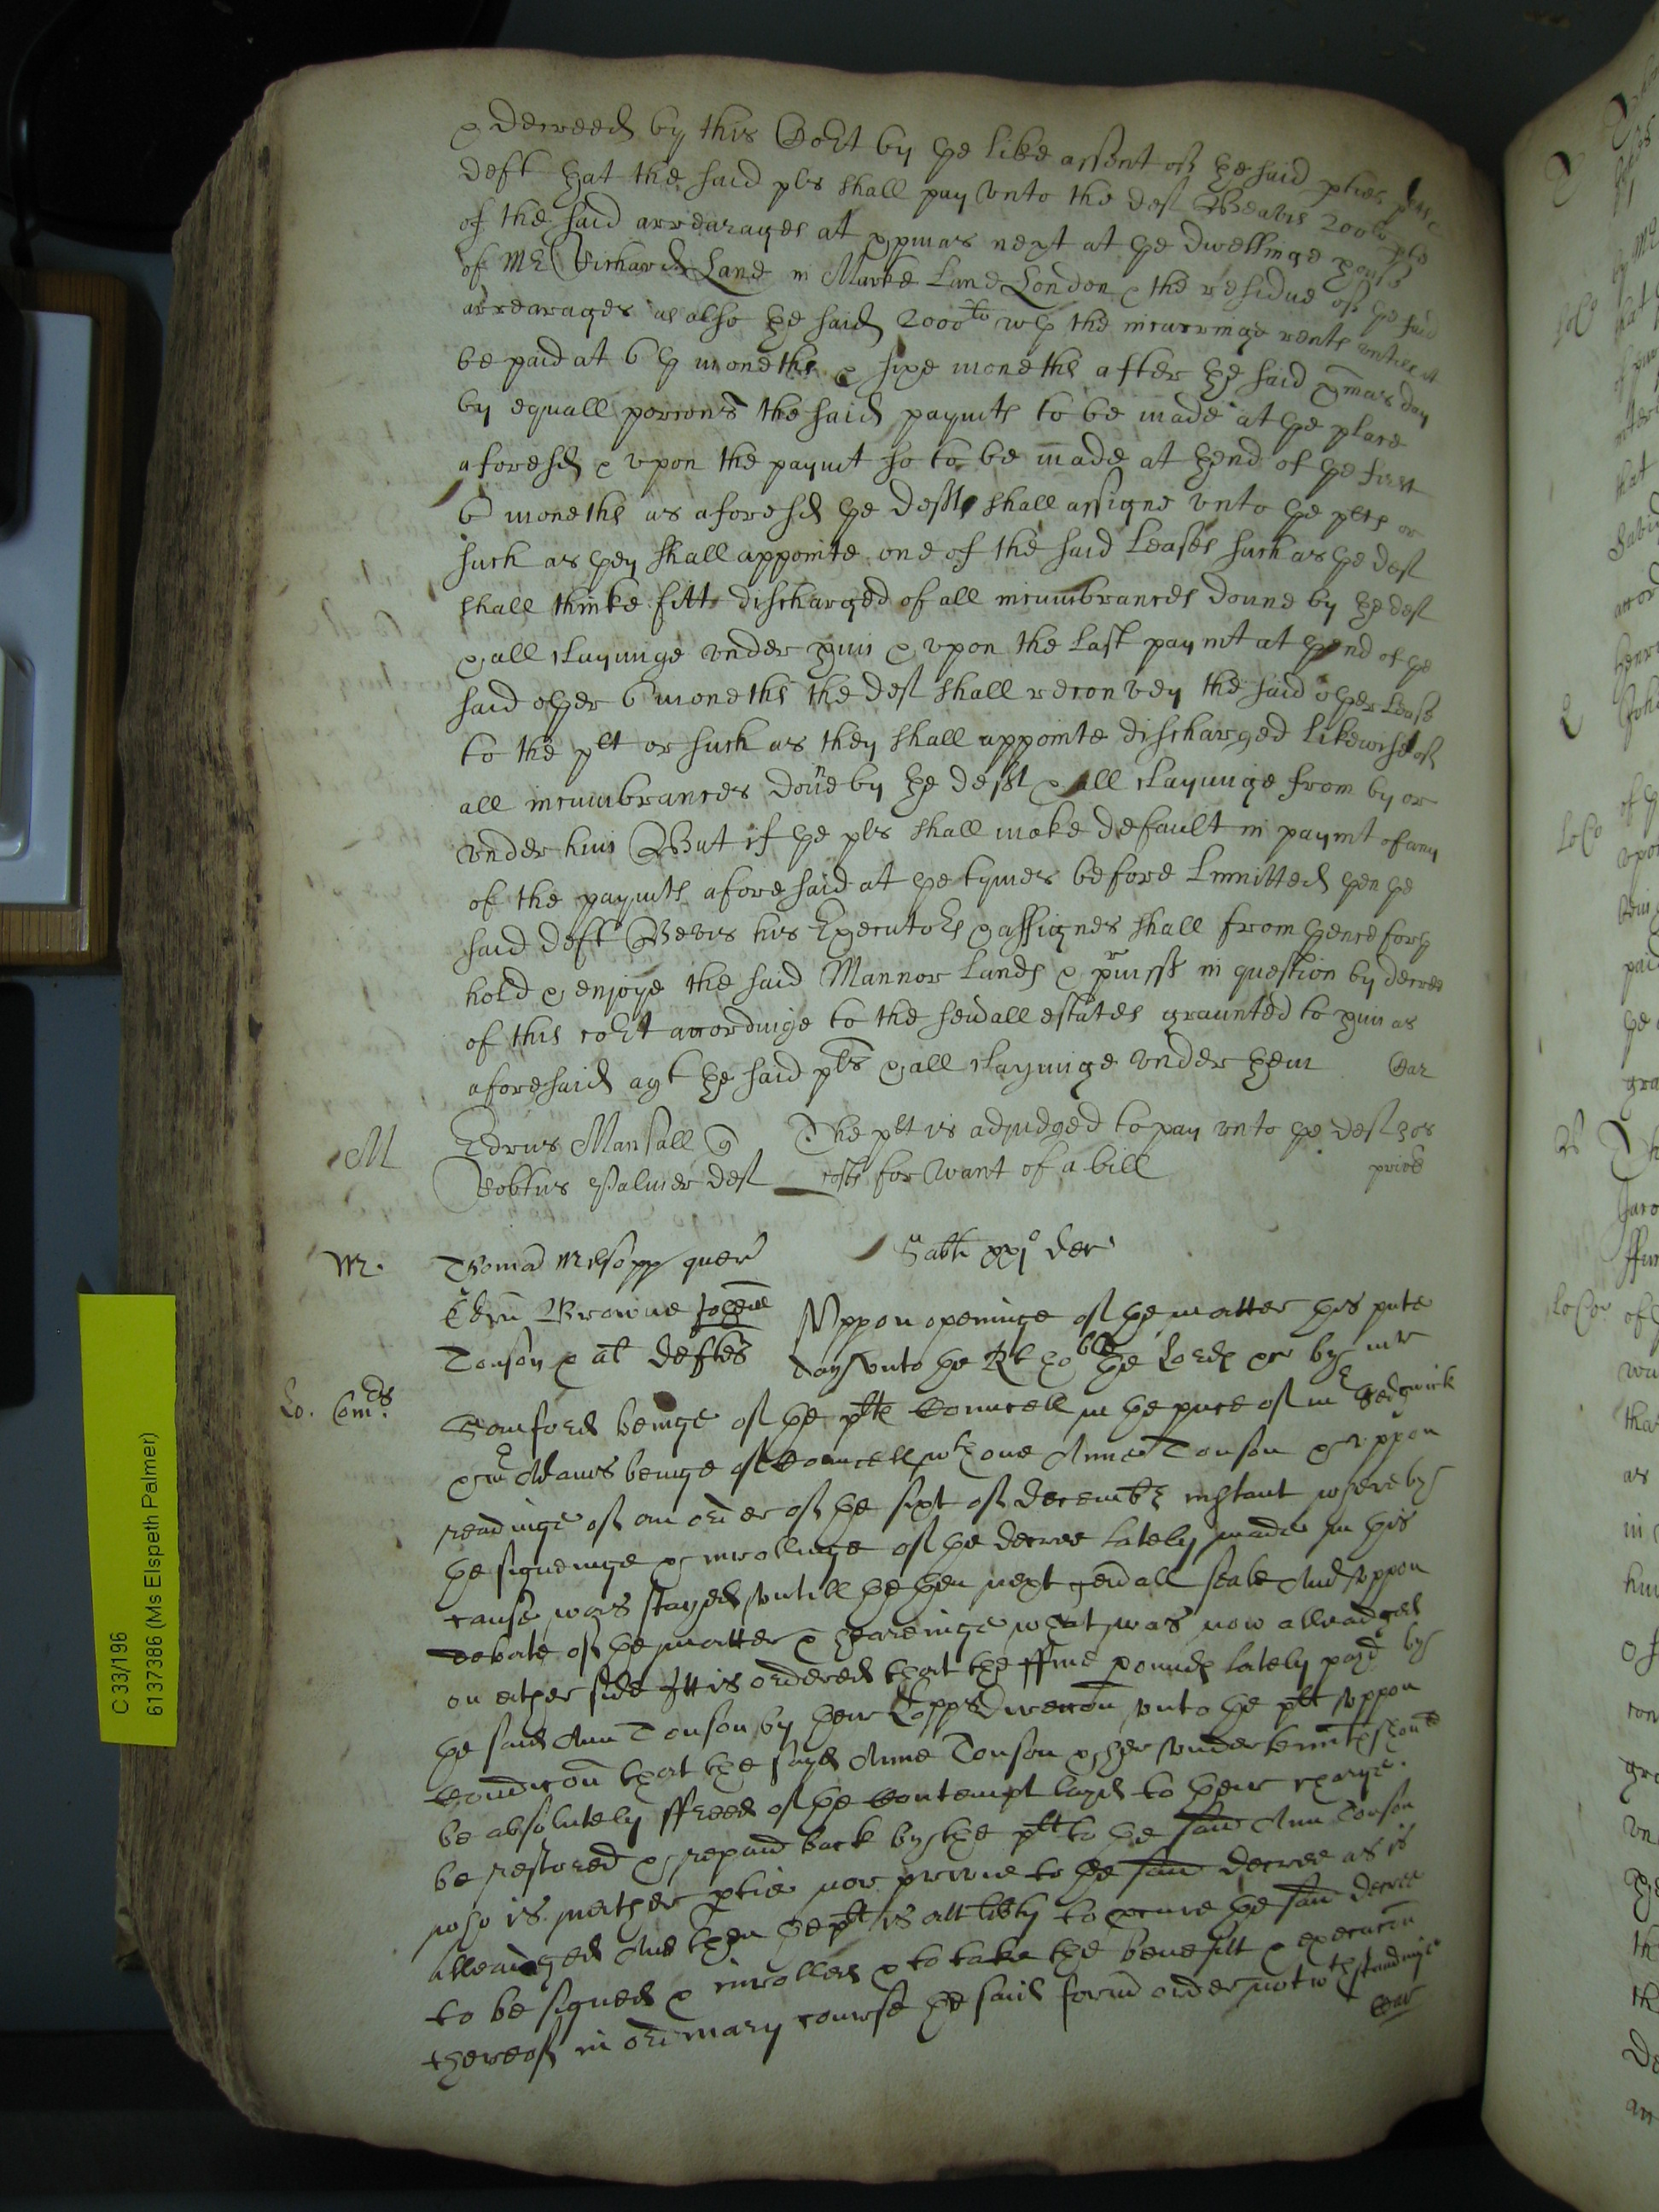 & decreed by this Cort by the like assent of the said pties
deft that the said pls shall pay vnto the deft Beavis 200li
of the said arrearages at xpmas next at the dwellinge house
of Mr Richard Lane in Marke Lane London & the residue of the said
arrearages as also the said 2000li wth the incurringe rents vntill it
be paid at 6 moneths & sixe moneths after the said xpmas day
by equall porcons the said paymts to be made at the place
aforesd & vpon the paymt so to be made at thend of the first
6 moneths as aforesd the deft shall assigne vnto the plts or
such as they shall appointe one of the said Leases such as the deft
shall thinke fitt discharged of all incumbrances donne by the deft
& all clayminge vnder him & vpon the last paymt at thend of the
said other 6 moneths the deft shall reconvey the said other Lease
to the plt or such as they shall appointe discharged likewise of
all incumbrances done by the deft & all clayminge from by or
vnder him But if the pls shall make default in paymt of any
of the paymts aforesaid at the tymes before Limitted then the
said deft Bevis his Executors & assignes shall from thenceforth
hold & enjoye the said Mannor Lands & prmisss in question by decree
of this cort accordinge to the seuall estates graunted to him as
aforesaid agt the said pls & all clayminge vnder them
M Edrus Mansall q The plt is adjudged to pay vnto the deft 30s
Robtus Palmer deft costs for want of a bill
Sabti xxjo Decr
M. Thomas Melsopp quer
Browne Vppon openinge of the matter this pnte
Tonson & al deftes day vnto the Rt hoble the Lords &c by mr
Lo. Comrs Samford beinge of the plts Councell in the pnce of mr Sedgwick
& mr Adams beinge of Councell wth one Anne Tonson & vppon
readinge of an order of the sixt of decembr instant whereby
the signeinge & inrollinge of the decree lately made in this
cause was stayed vntill the then next genall seale And vppon
debate of the matter & heareinge what was now alleadged
on either side Itt is ordered that the ffive pounds lately payd by
the said Ann Tonson by their Lopps direccon vnto the plt vppon
Condicon that the sayd Anne Tonson & her vndertennts should
be absolutely ffreed of the Contempt layd to their charge.
be restored & repaid back by the plt to the said Ann Tonson
who is neither ptie nor privie to the said decree as is
alleadged And then the plt is att libty to pcure the said decree
to be signed & inrolled & to take the benefitt & execucon
thereof in ordinary course the said formr order notwthstandinge
C 33/196
6137386 (Ms Elspeth Palmer)